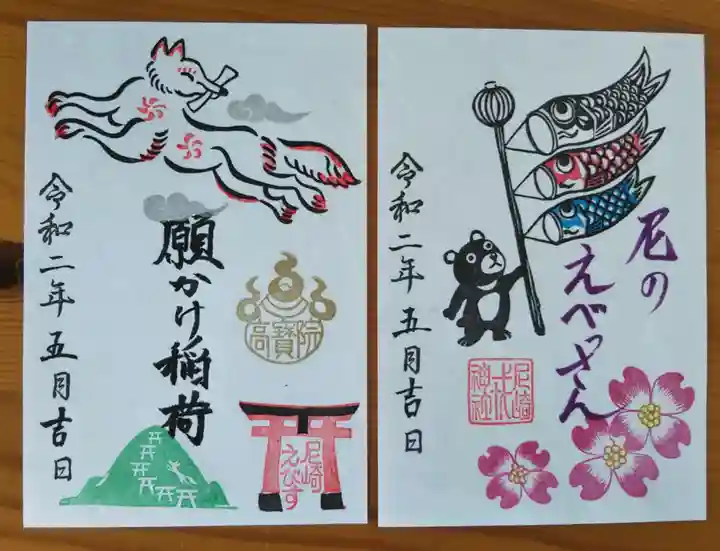 願かけ稲荷
令和二年五月吉日
高寳院
尼崎
えびす
尼の
えべっさん
令和二年五月吉日
尼崎
戎
神社